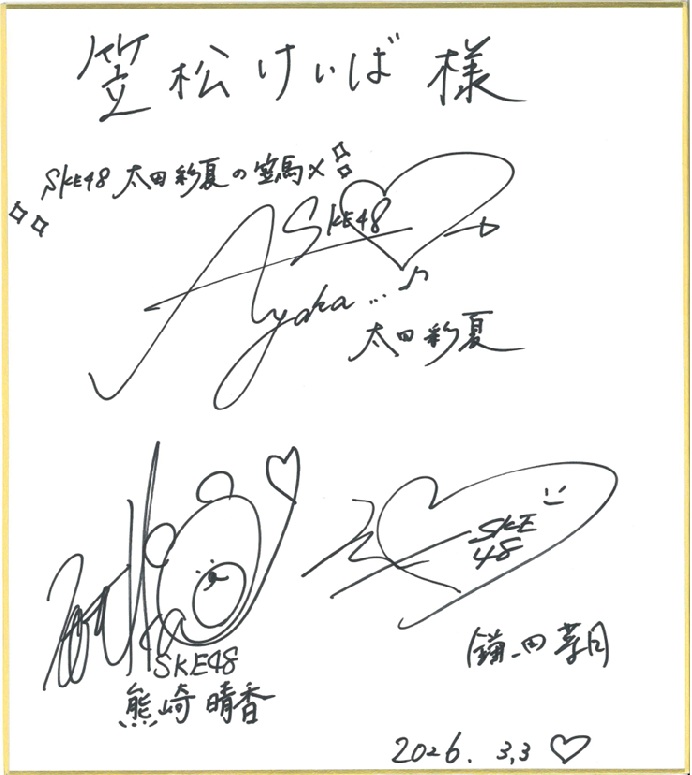 笠松けいば 様
SKE48 太田彩夏の空馬×
SKE48
Ayaka...♪
太田彩夏
SKE48
熊崎晴香
SKE
48
鎌田菜月
2026. 3.3 ♡